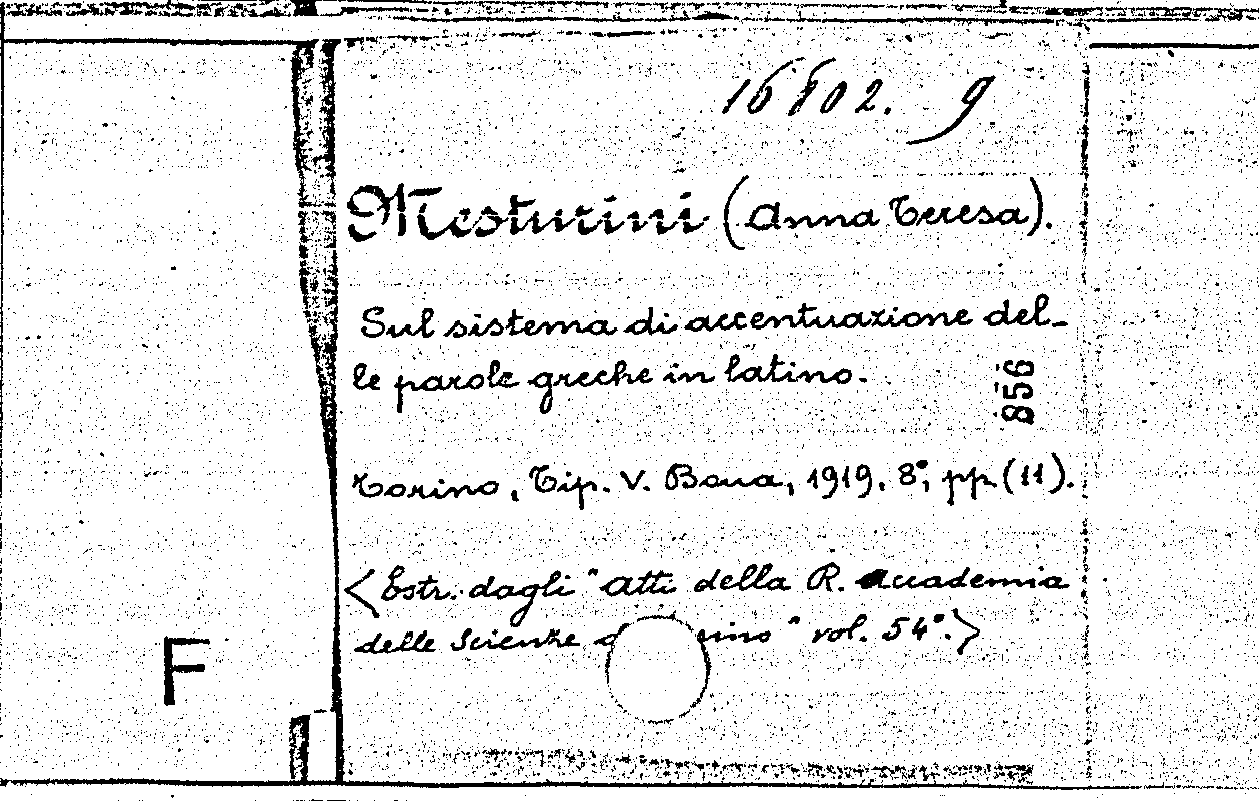 16802. 9
Mesturini (Anna Teresa).
Sul sistema di accentuazione del-
le parole greche in latino.
856
Torino, Tip. V. Bona, 1919. 8°, pp. (11).
<Estr. dagli "Atti della R. Accademia
delle Scienze vol. 54°.>
F